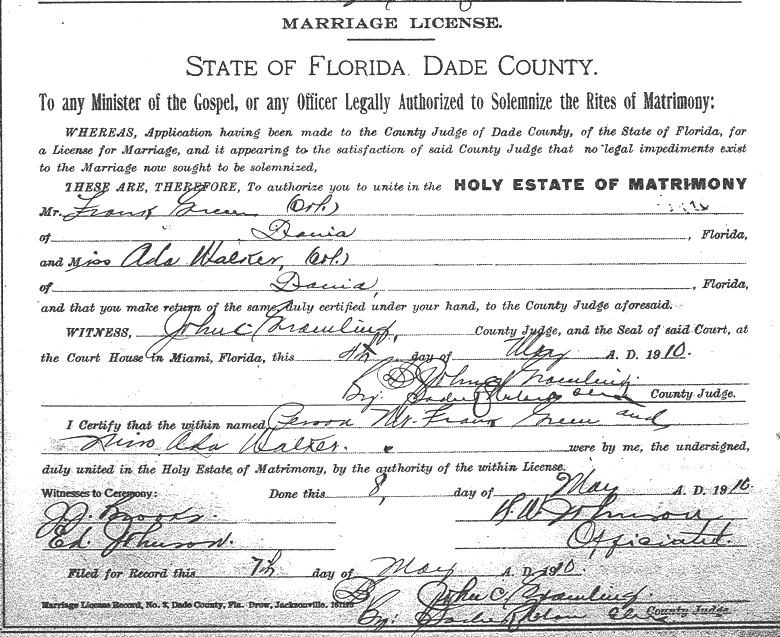 MARRIAGE LICENSE.
STATE OF FLORIDA. DADE COUNTY.
To any Minister of the Gospel, or any Officer Legally Authorized to Solemnize the Rites of Matrimony:
WHEREAS, Application having been made to the County Judge of Dade County, of the State of Florida, for
a License for Marriage, and it appearing to the satisfaction of said County Judge that no legal impediments exist
to the Marriage now sought to be solemnized,
THESE ARE, THEREFORE, To authorize you to unite in the HOLY ESTATE OF MATRIMONY
Mr. Frank Green (Col.)
of Dania, Florida,
and Miss Ada Walker, (Col.)
of Dania, Florida,
and that you make return of the same, duly certified under your hand, to the County Judge aforesaid.
WITNESS, John C Gramling, County Judge, and the Seal of said Court, at
the Court House in Miami, Florida, this 4th day of May A. D. 1910.
John C Gramling
By: County Judge.
I Certify that the within named Person Mr. Frank Green and
Miss Ada Walker. were by me, the undersigned,
duly united in the Holy Estate of Matrimony, by the authority of the within License.
Witnesses to Ceremony: Done this 8, day of May A. D. 1910.
J.J. Brooks. B.W. Johnson
Ed. Johnson. Officiated.
Filed for Record this 7th day of May A. D. 1910.
John C. Gramling.
Marriage License Record, No. 8, Dade County, Fla. Drew, Jacksonville. By: County Judge